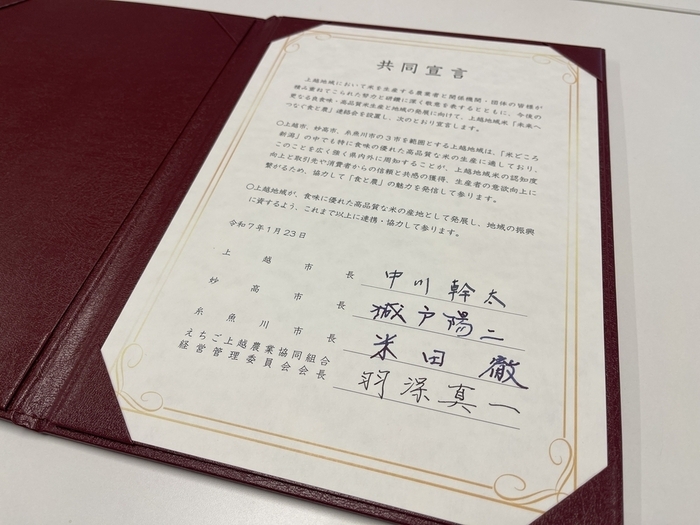 共同宣言
上越地域において米を生産する農業者と関係機関・団体の皆様が
積み重ねてこられた努力と研鑽に深く敬意を表するとともに、今後の
更なる良食味・高品質米生産と地域の発展に向けて、上越地域米「未来へ
つなぐ食と農」連絡会を設置し、次のとおり宣言します。
〇上越市、妙高市、糸魚川市の3市を範囲とする上越地域は、「米どころ
新潟」の中でも特に食味の優れた高品質な米の生産に適しており、
このことを広く強く県内外に周知することが、上越地域米の認知度
向上と取引先や消費者からの信頼と共感の獲得、生産者の意欲向上に
繋がるため、協力して「食と農」の魅力を発信して参ります。
〇上越地域が、食味に優れた高品質な米の産地として発展し、地域の振興
に資するよう、これまで以上に連携・協力して参ります。
令和7年1月23日
上越市長 中川幹太
妙高市長 城戸陽二
糸魚川市長 米田徹
えちご上越農業協同組合
経営管理委員会会長 羽深真一